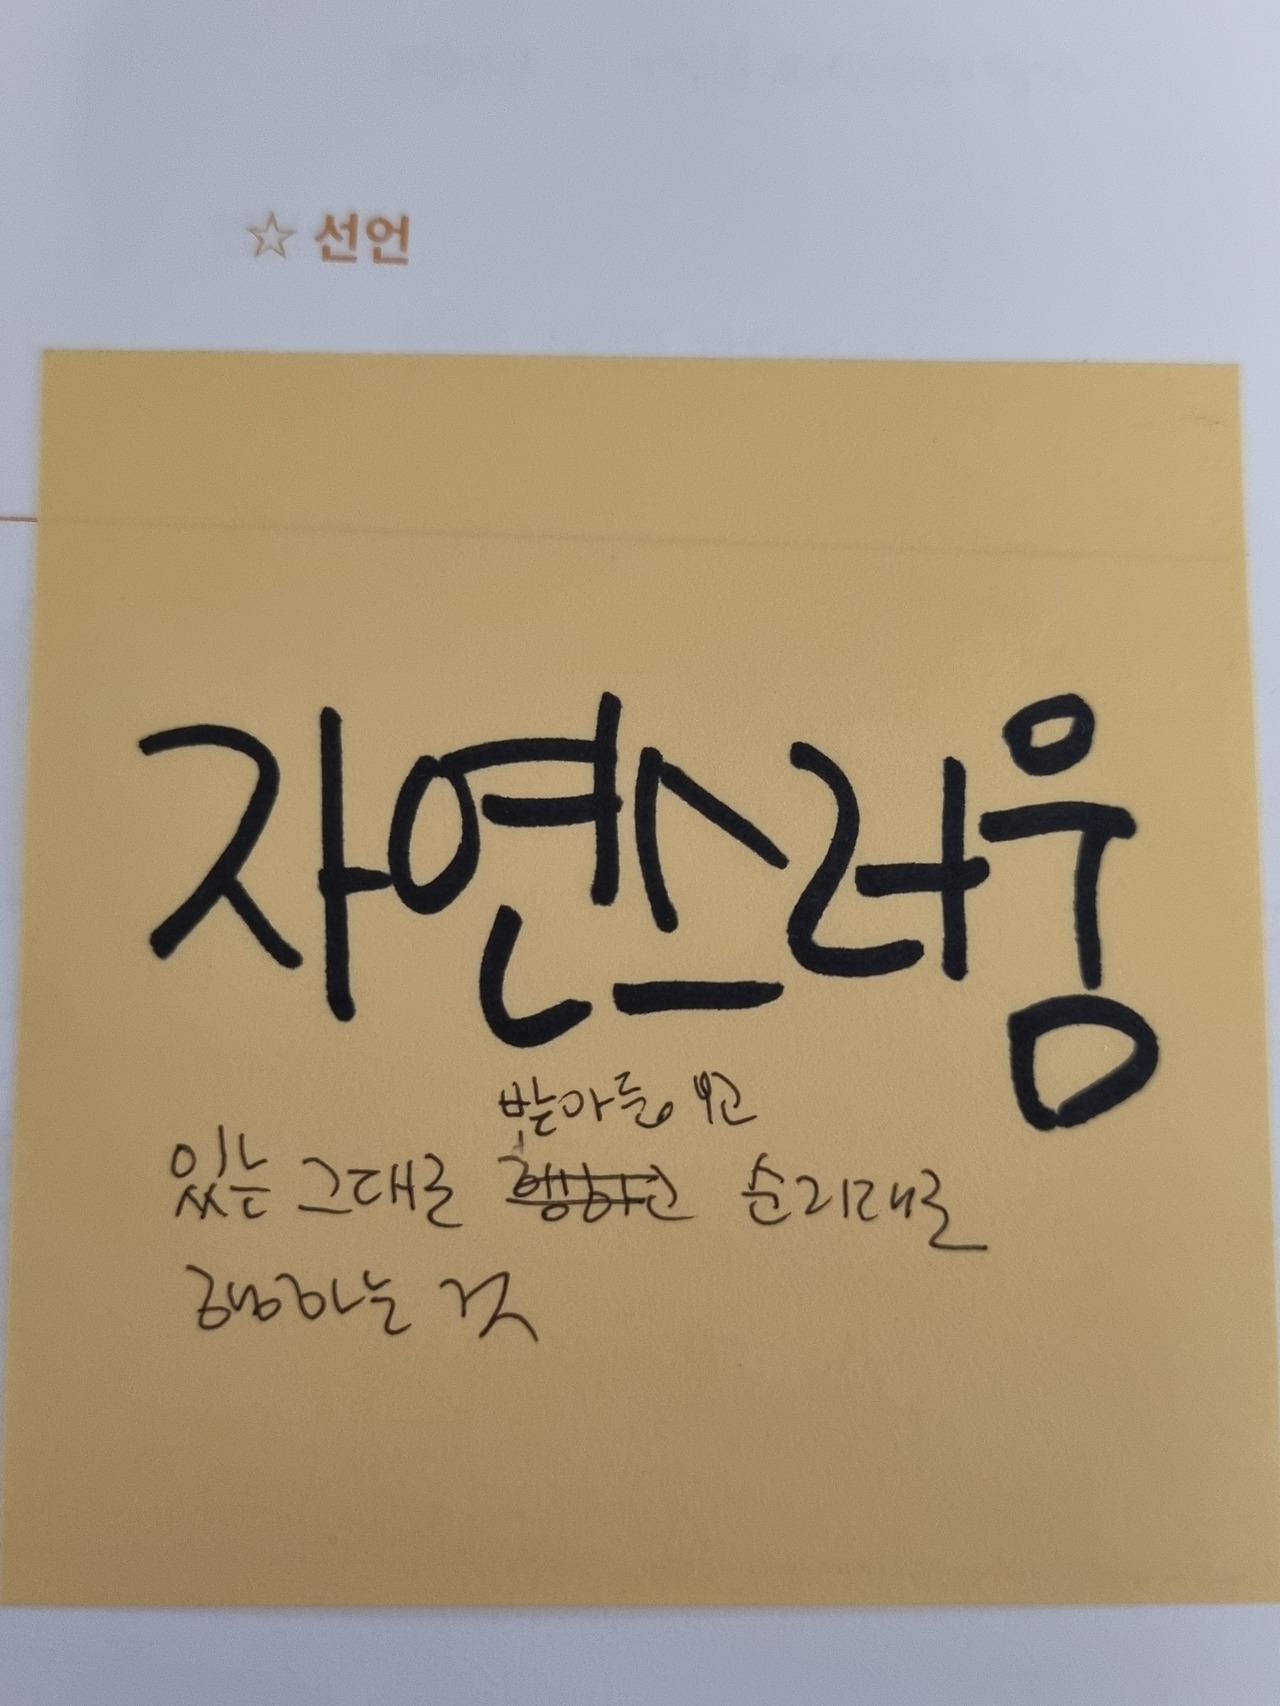 ☆ 선언
자연스러움
받아들이고
있는 그대로 행하고 순리대로
행하는 것